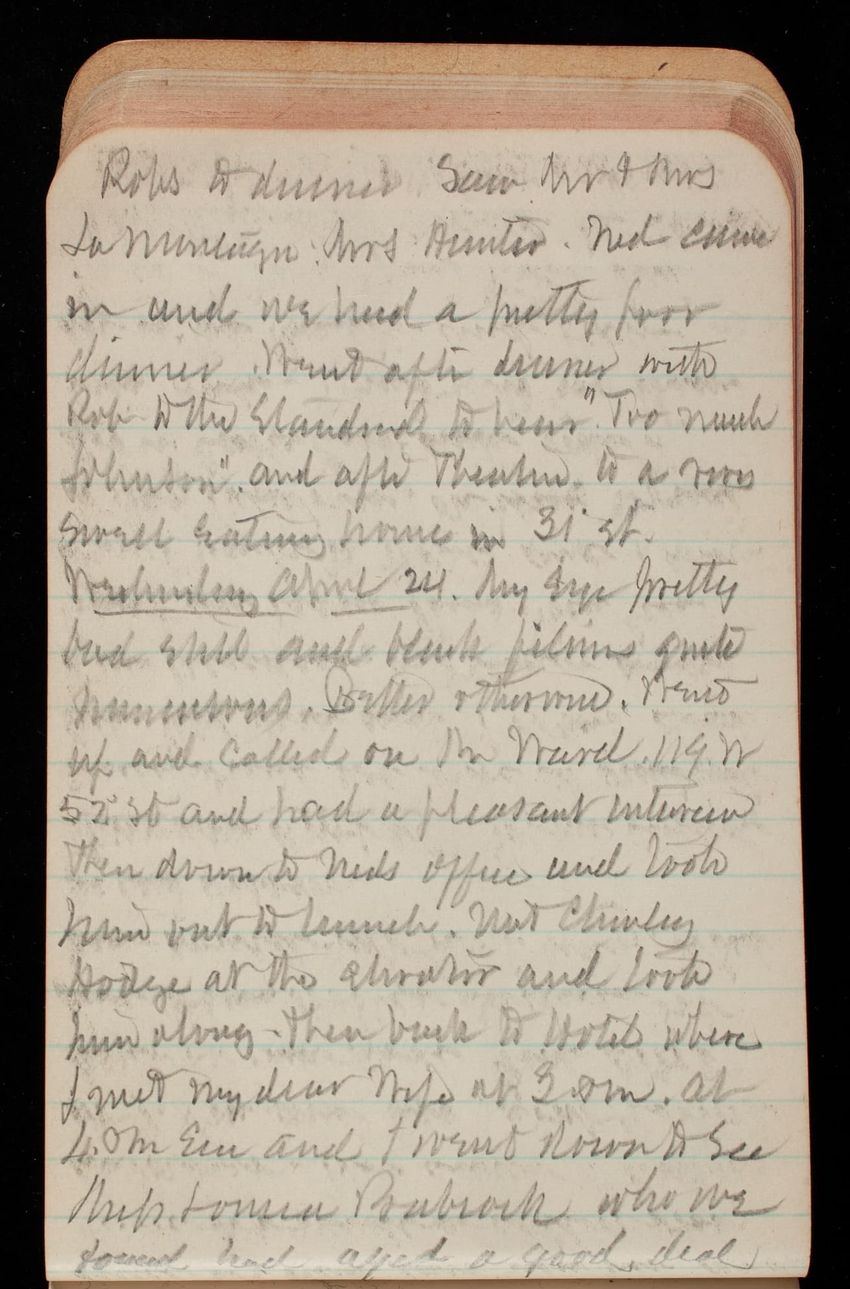 Robs to dinner Saw Mr & Mrs
La Montagn. Mrs Hunter. Ned came
in and we had a pretty poor
dinner. Went after dinner with
Rob to the Standard to hear "Too much
Johnson". and after Theatre to a very
swell eating house in 31 st.
Wednesday April 24. My Eye pretty
bad still and black films quite
numerous. Better otherwise. Went
up and called on Dr Ward. 119. W
52 St and had a pleasant interview
Then down to Neds office and took
him out to lunch. Met Charley
Hodge at the elevator and took
him along. Then back to Hotel where
I met my dear Wife at 3. Pm. at
4. Pm Em and I went down to See
Miss Louisa who we
found had aged a good deal